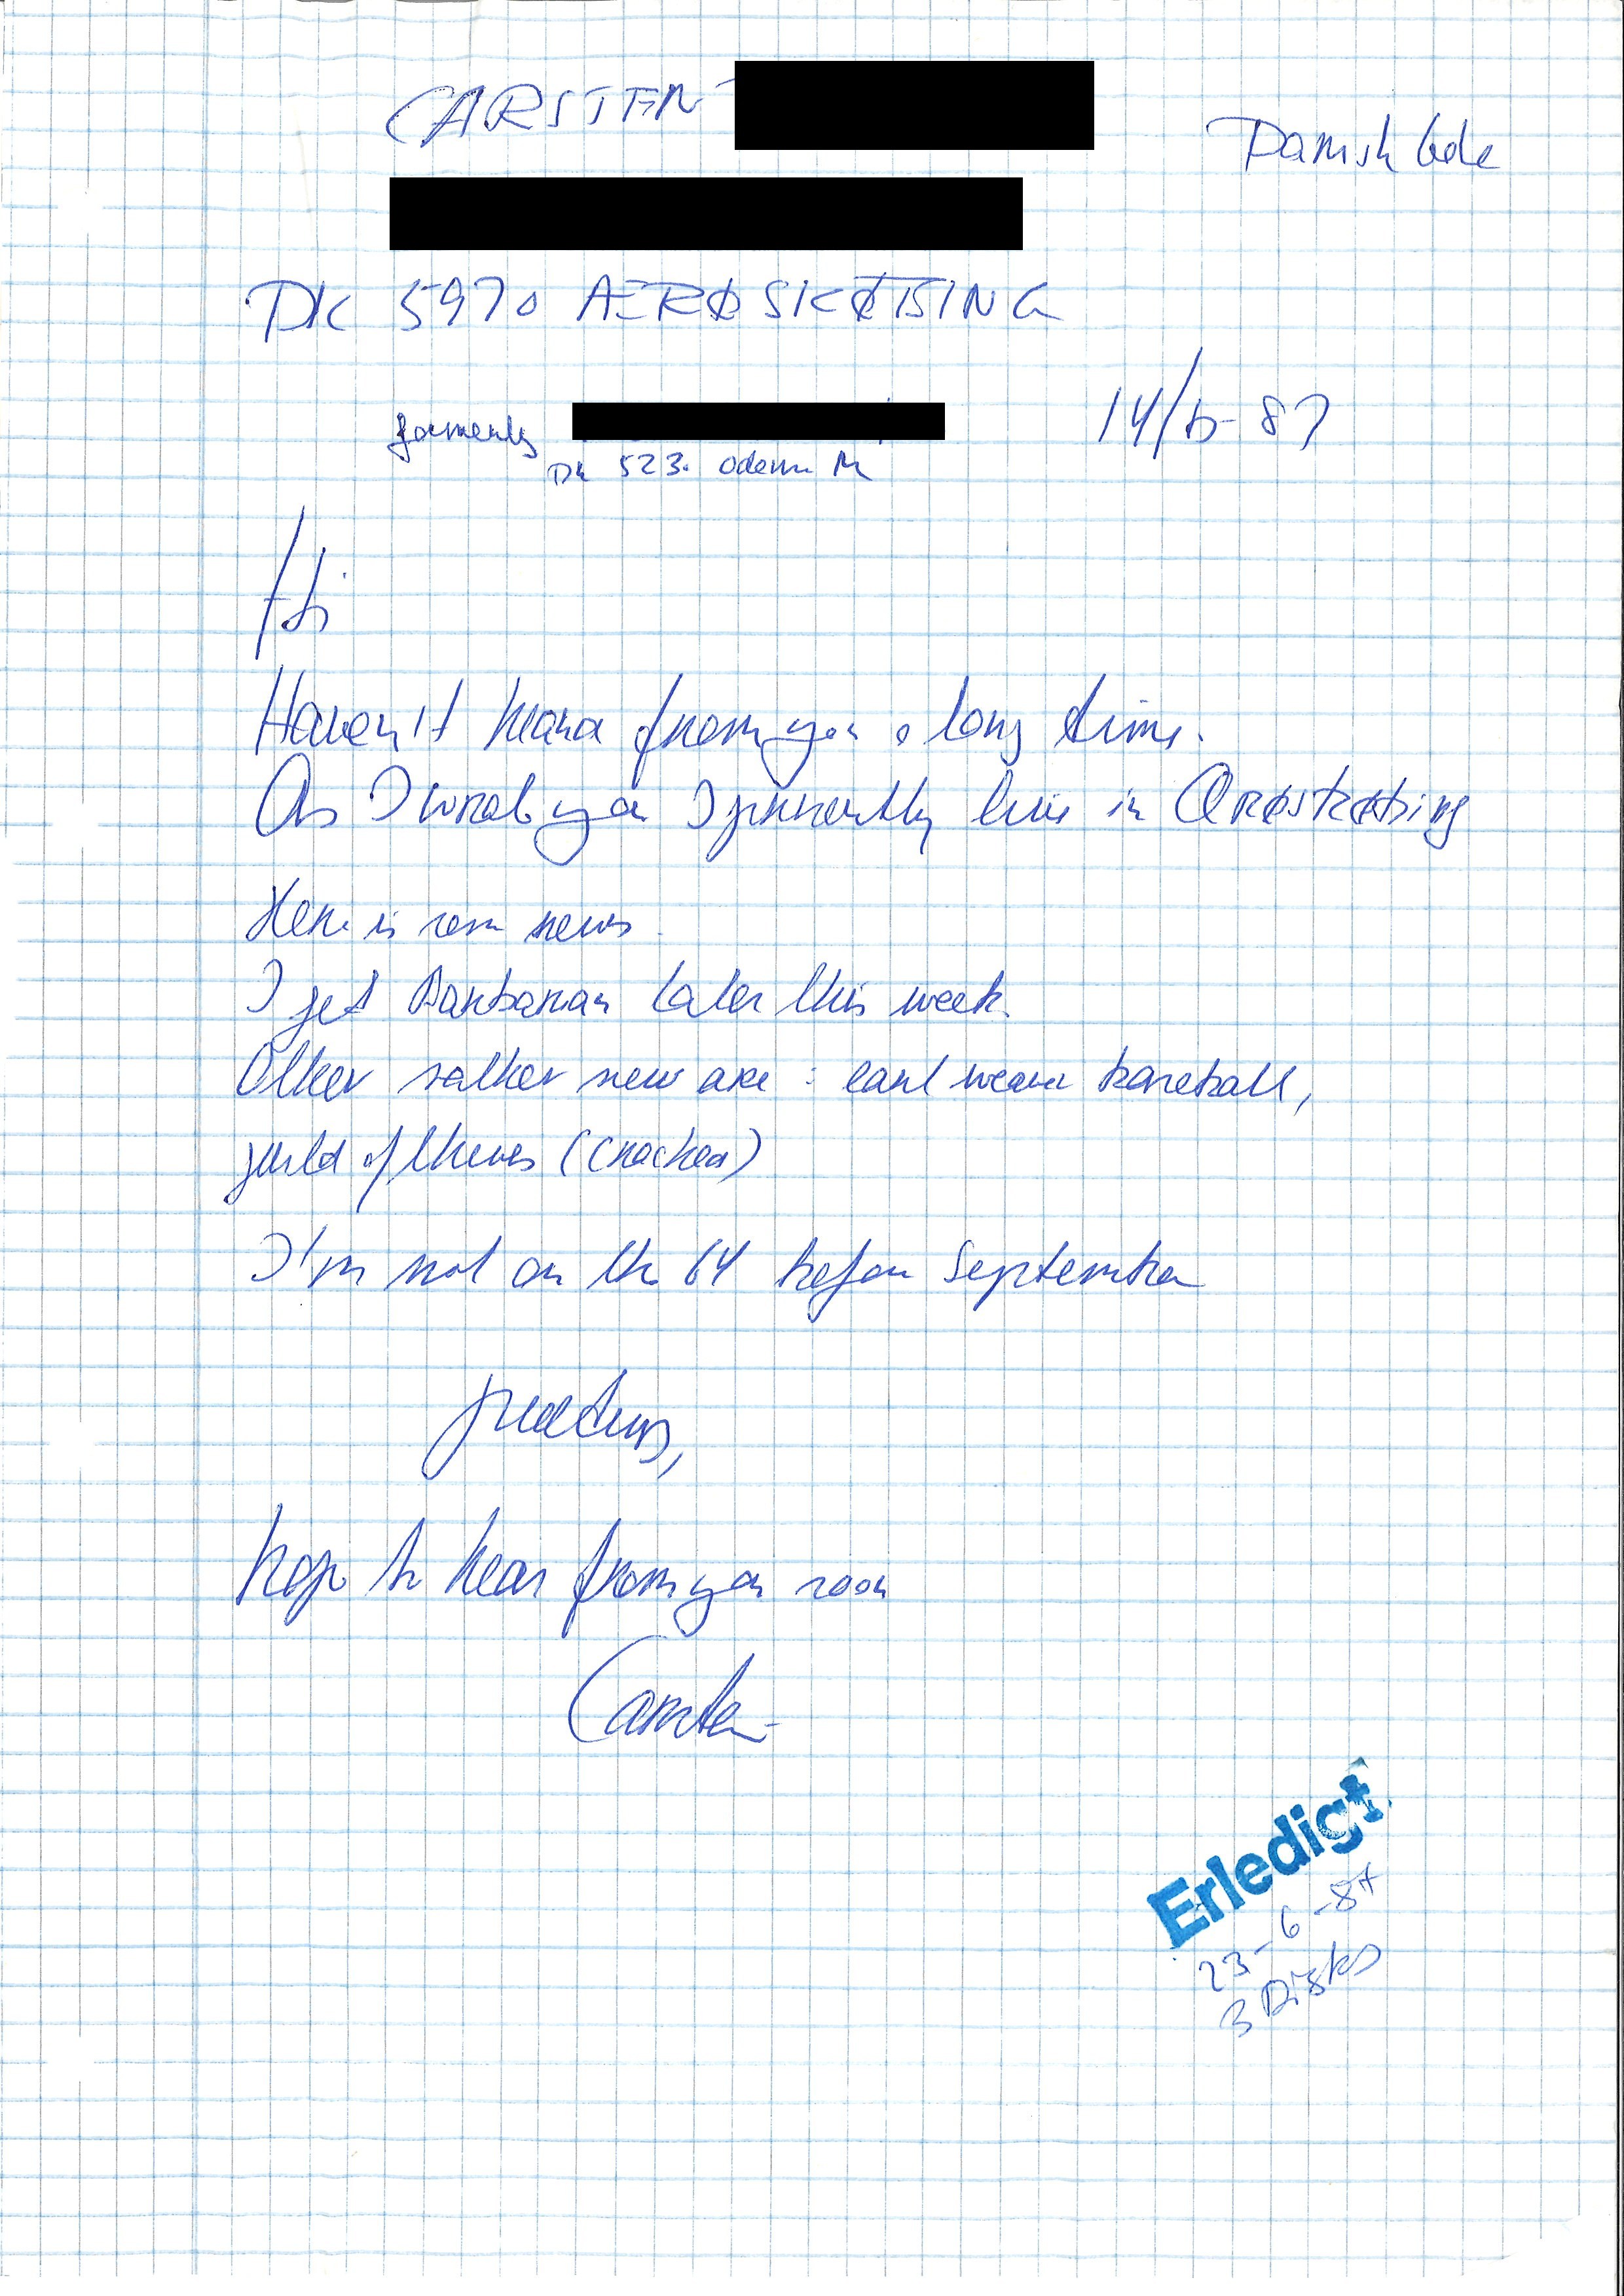 CARSTEN
Danish Gde
DK 5970 ÆRØSKØBING
formerly
14/6-87
DK 523. Odense M
Hi
Haven't heard from you a long time.
As I wrote you I presently live in Ærøskøbing
Here is som news.
I get Barbarian later this week.
Other rather new are : earl weaver baseball,
guild of thieves (cracked)
I'm not on the 64 before September
greetings,
hope to hear from you soon
Carsten
Erledigt
23-6-87
3 Disks